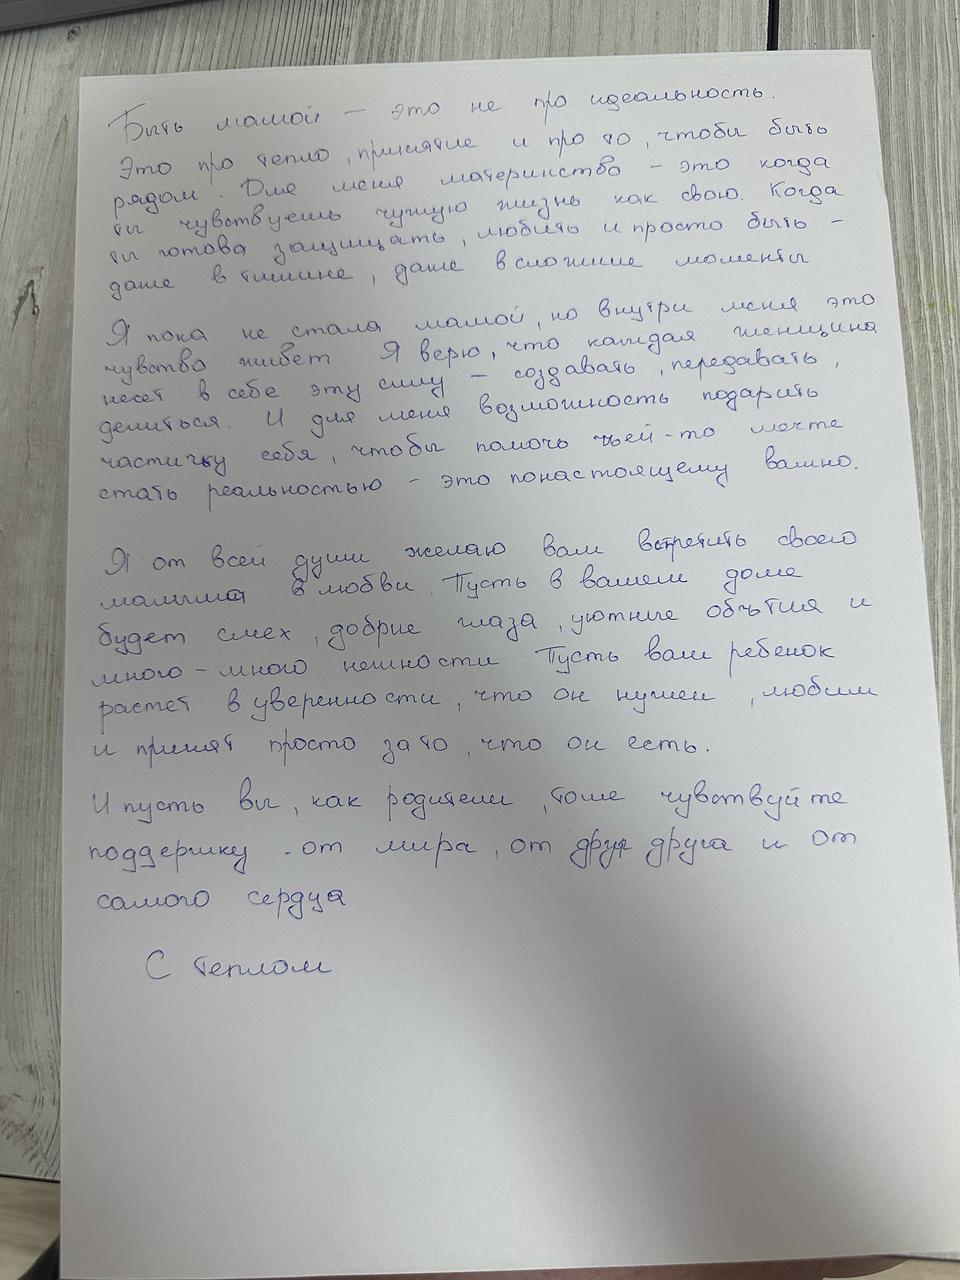 Быть мамой — это не про идеальность.
Это про тепло, принятие и про то, чтобы быть
рядом. Для меня материнство — это когда
ты чувствуешь чужую жизнь как свою. Когда
ты готова защищать, любить и просто быть —
даже в тишине, даже в сложные моменты
Я пока не стала мамой, но внутри меня это
чувство живет Я верю, что каждая женщина
несет в себе эту силу — создавать, передавать,
делиться. И для меня возможность подарить
частичку себя, чтобы помочь чьей-то мечте
стать реальностью — это понастоящему важно.
Я от всей души желаю вам встретить своего
малыша в любви. Пусть в вашем доме
будет смех, добрые глаза, уютные объятия и
много-много нежности. Пусть ваш ребенок
растет в уверенности, что он нужен, любим
и принят просто за то, что он есть.
И пусть вы, как родители, тоже чувствуйте
поддержку - от мира, от друг друга и от
самого сердца
С теплом